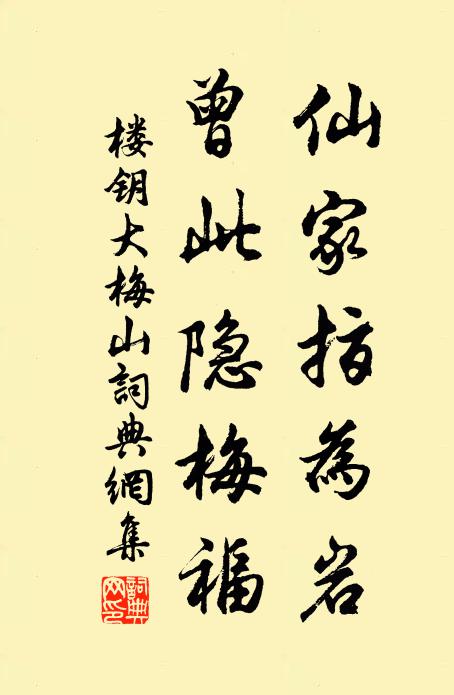 仙家指为岩
曾此隐梅福
楼钥大梅山詞典網集
詞典网印